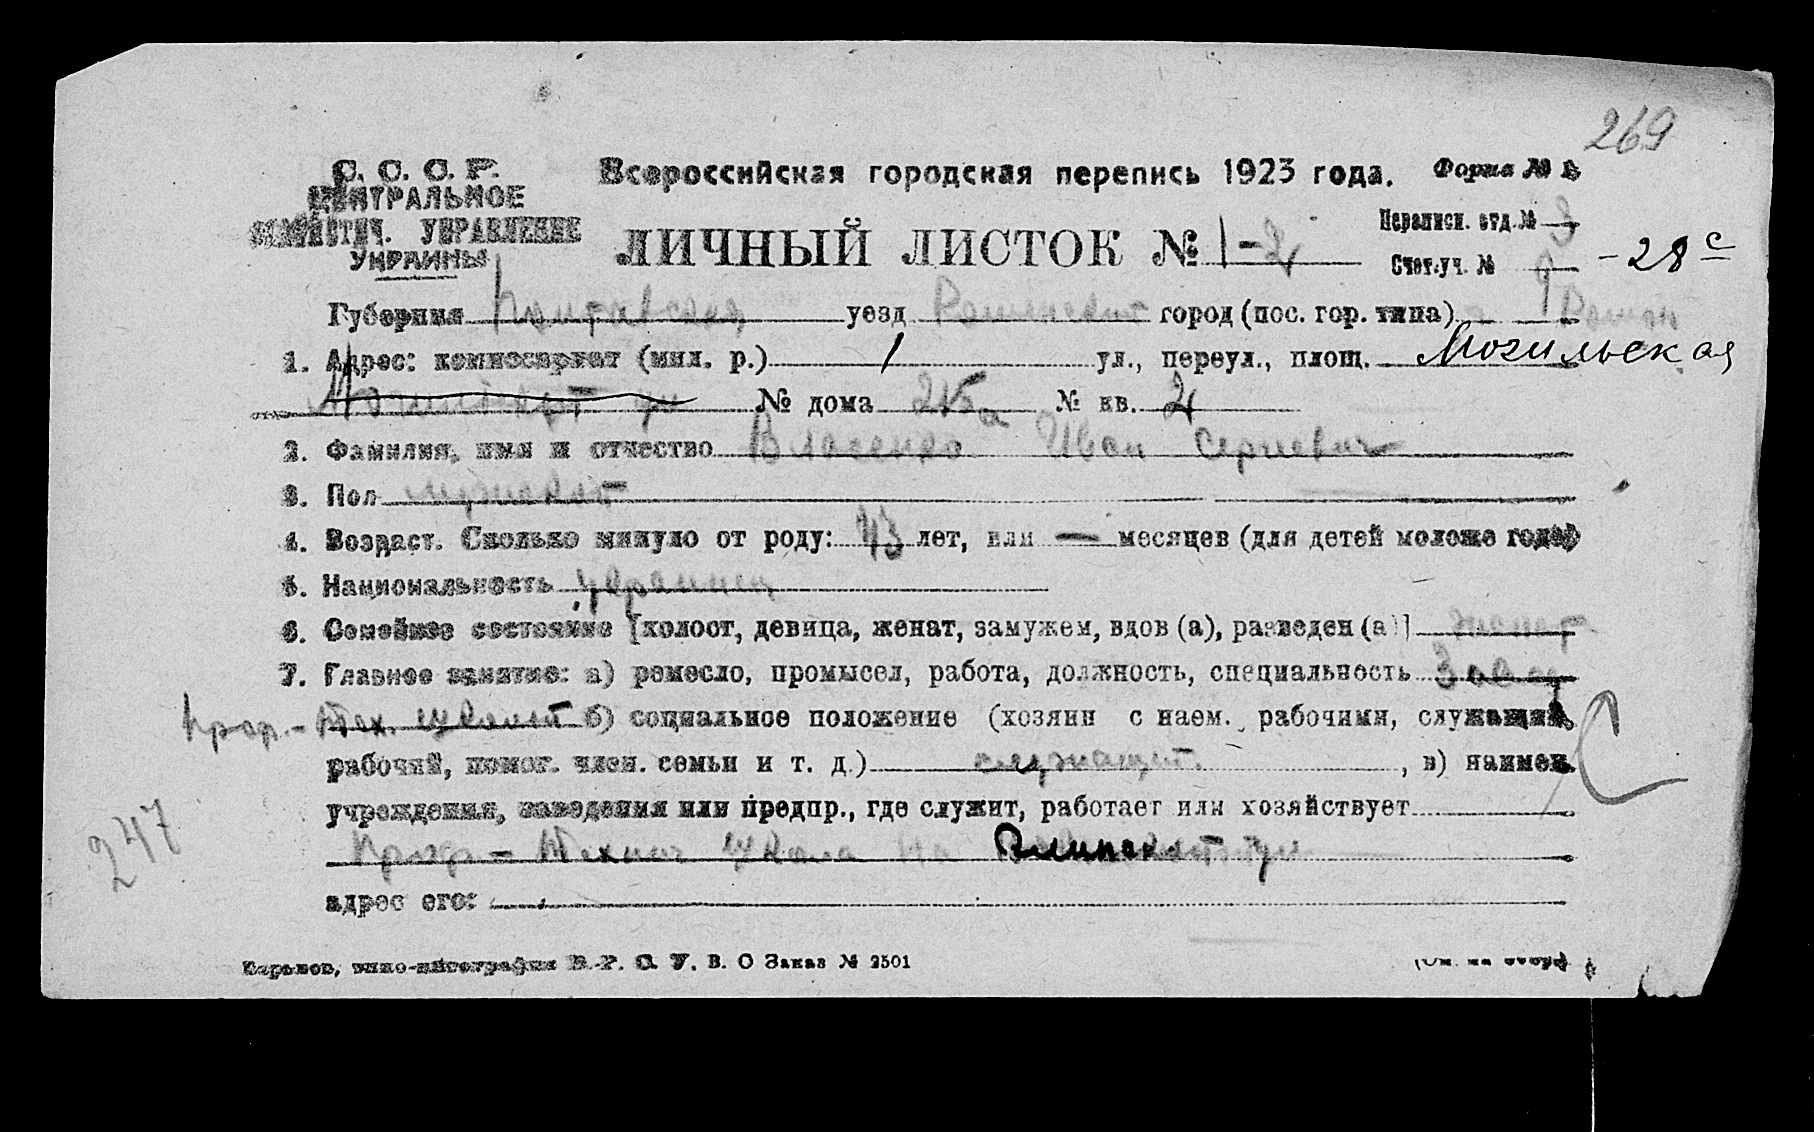 269
С. С. С. Р.
ЦЕНТРАЛЬНОЕ
СТАТИСТИЧ. УПРАВЛЕНИЕ
УКРАИНЫ
Всероссийская городская перепись 1923 года.
Форма № 1
ЛИЧНЫЙ ЛИСТОК № 1-2
Переписн. отд. № 3
Счет. уч. № 9 - 28 с
Губерния Полтавская уезд Роменский город (пос. гор. типа) Ромны
1. Адрес: комиссариат (мил. р.) 1 ул., переул., площ. Могильская
№ дома 25а № кв. 2
2. Фамилия, имя и отчество Власенко Иван Сергиевич
3. Пол мужской
4. Возраст. Сколько минуло от роду: 43 лет, или — месяцев (для детей моложе года)
5. Национальность украинец
6. Семейное состояние [холост, девица, женат, замужем, вдов (а), разведен (а)] женат
7. Главное занятие: а) ремесло, промысел, работа, должность, специальность Завед
Проф.-Тех. школой б) социальное положение (хозяин с наем. рабочими, служащий,
рабочий, помог. член. семьи и т. д.) служащий , в) наимен.
учреждения, заведения или предпр., где служит, работает или хозяйствует
Проф-Технич школа на
адрес его:
247
Харьков, типо-литография В. Р. С. У. В. О Заказ № 2501
(См. на обор.)